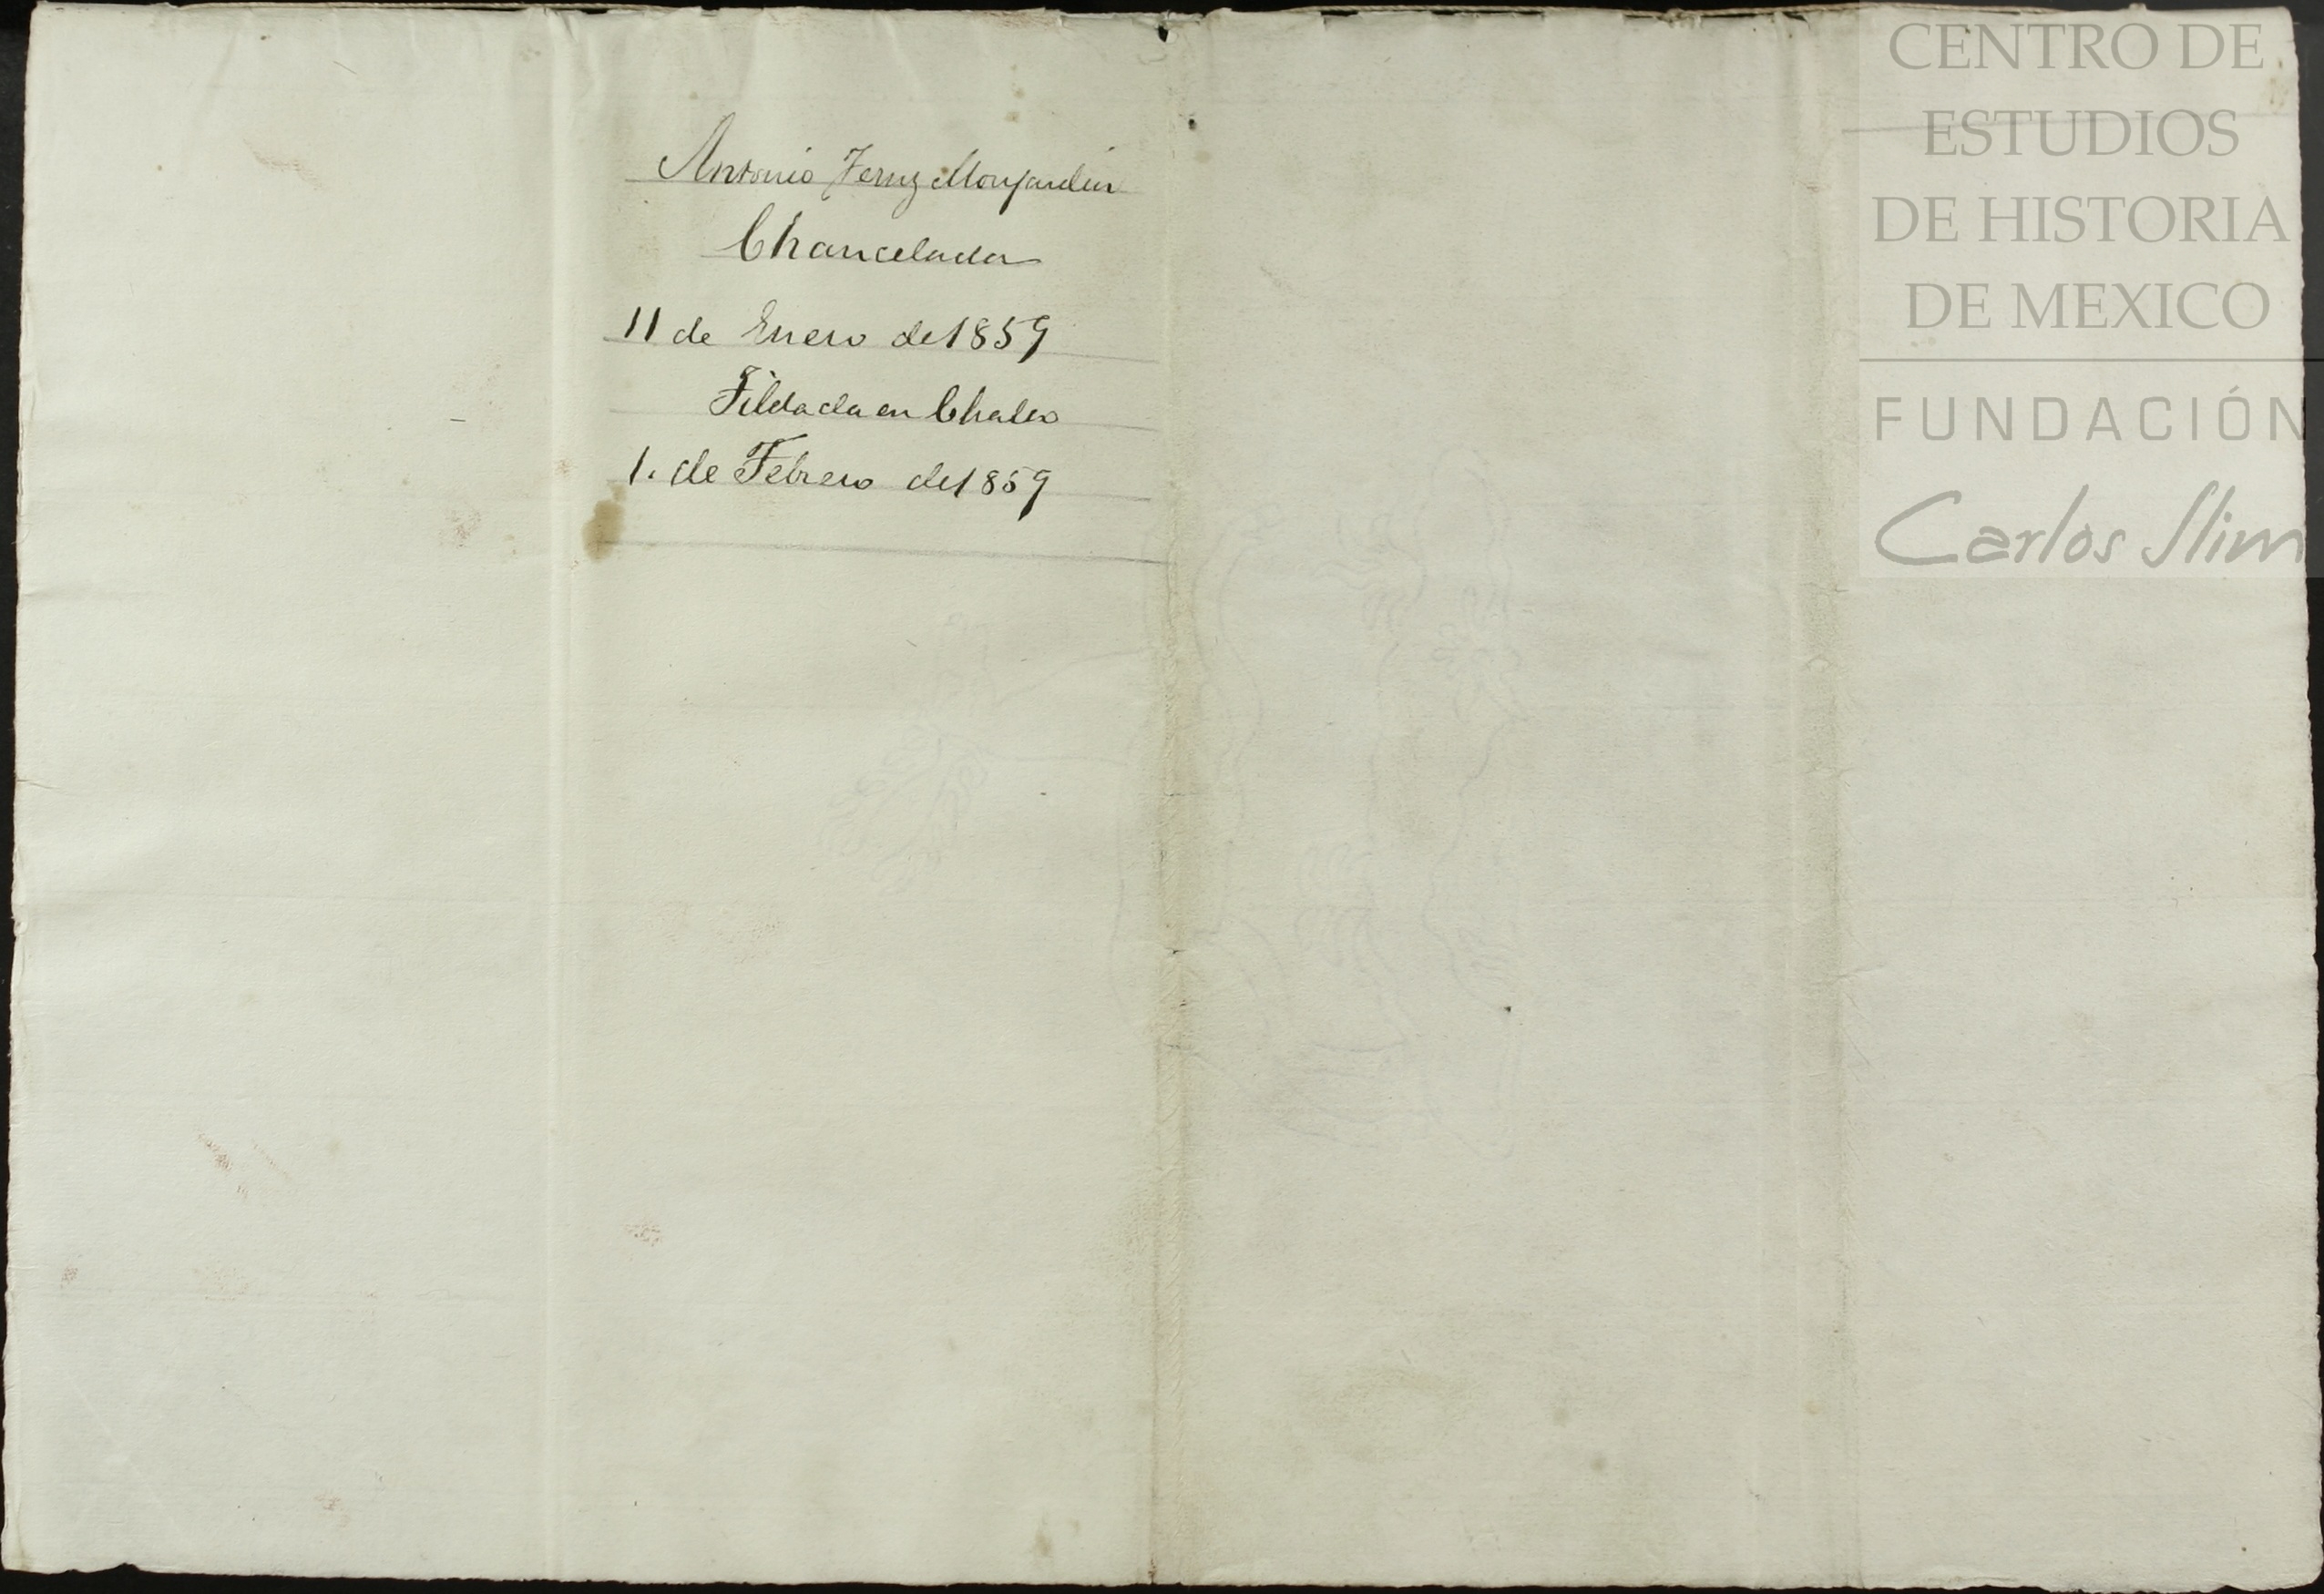 Antonio Fernz Monjardin
Chancelada
11 de Enero de 1859
Tildada en Chalco
1. de Febrero de 1859
CENTRO DE
ESTUDIOS
DE HISTORIA
DE MEXICO
FUNDACIÓN
Carlos Slim